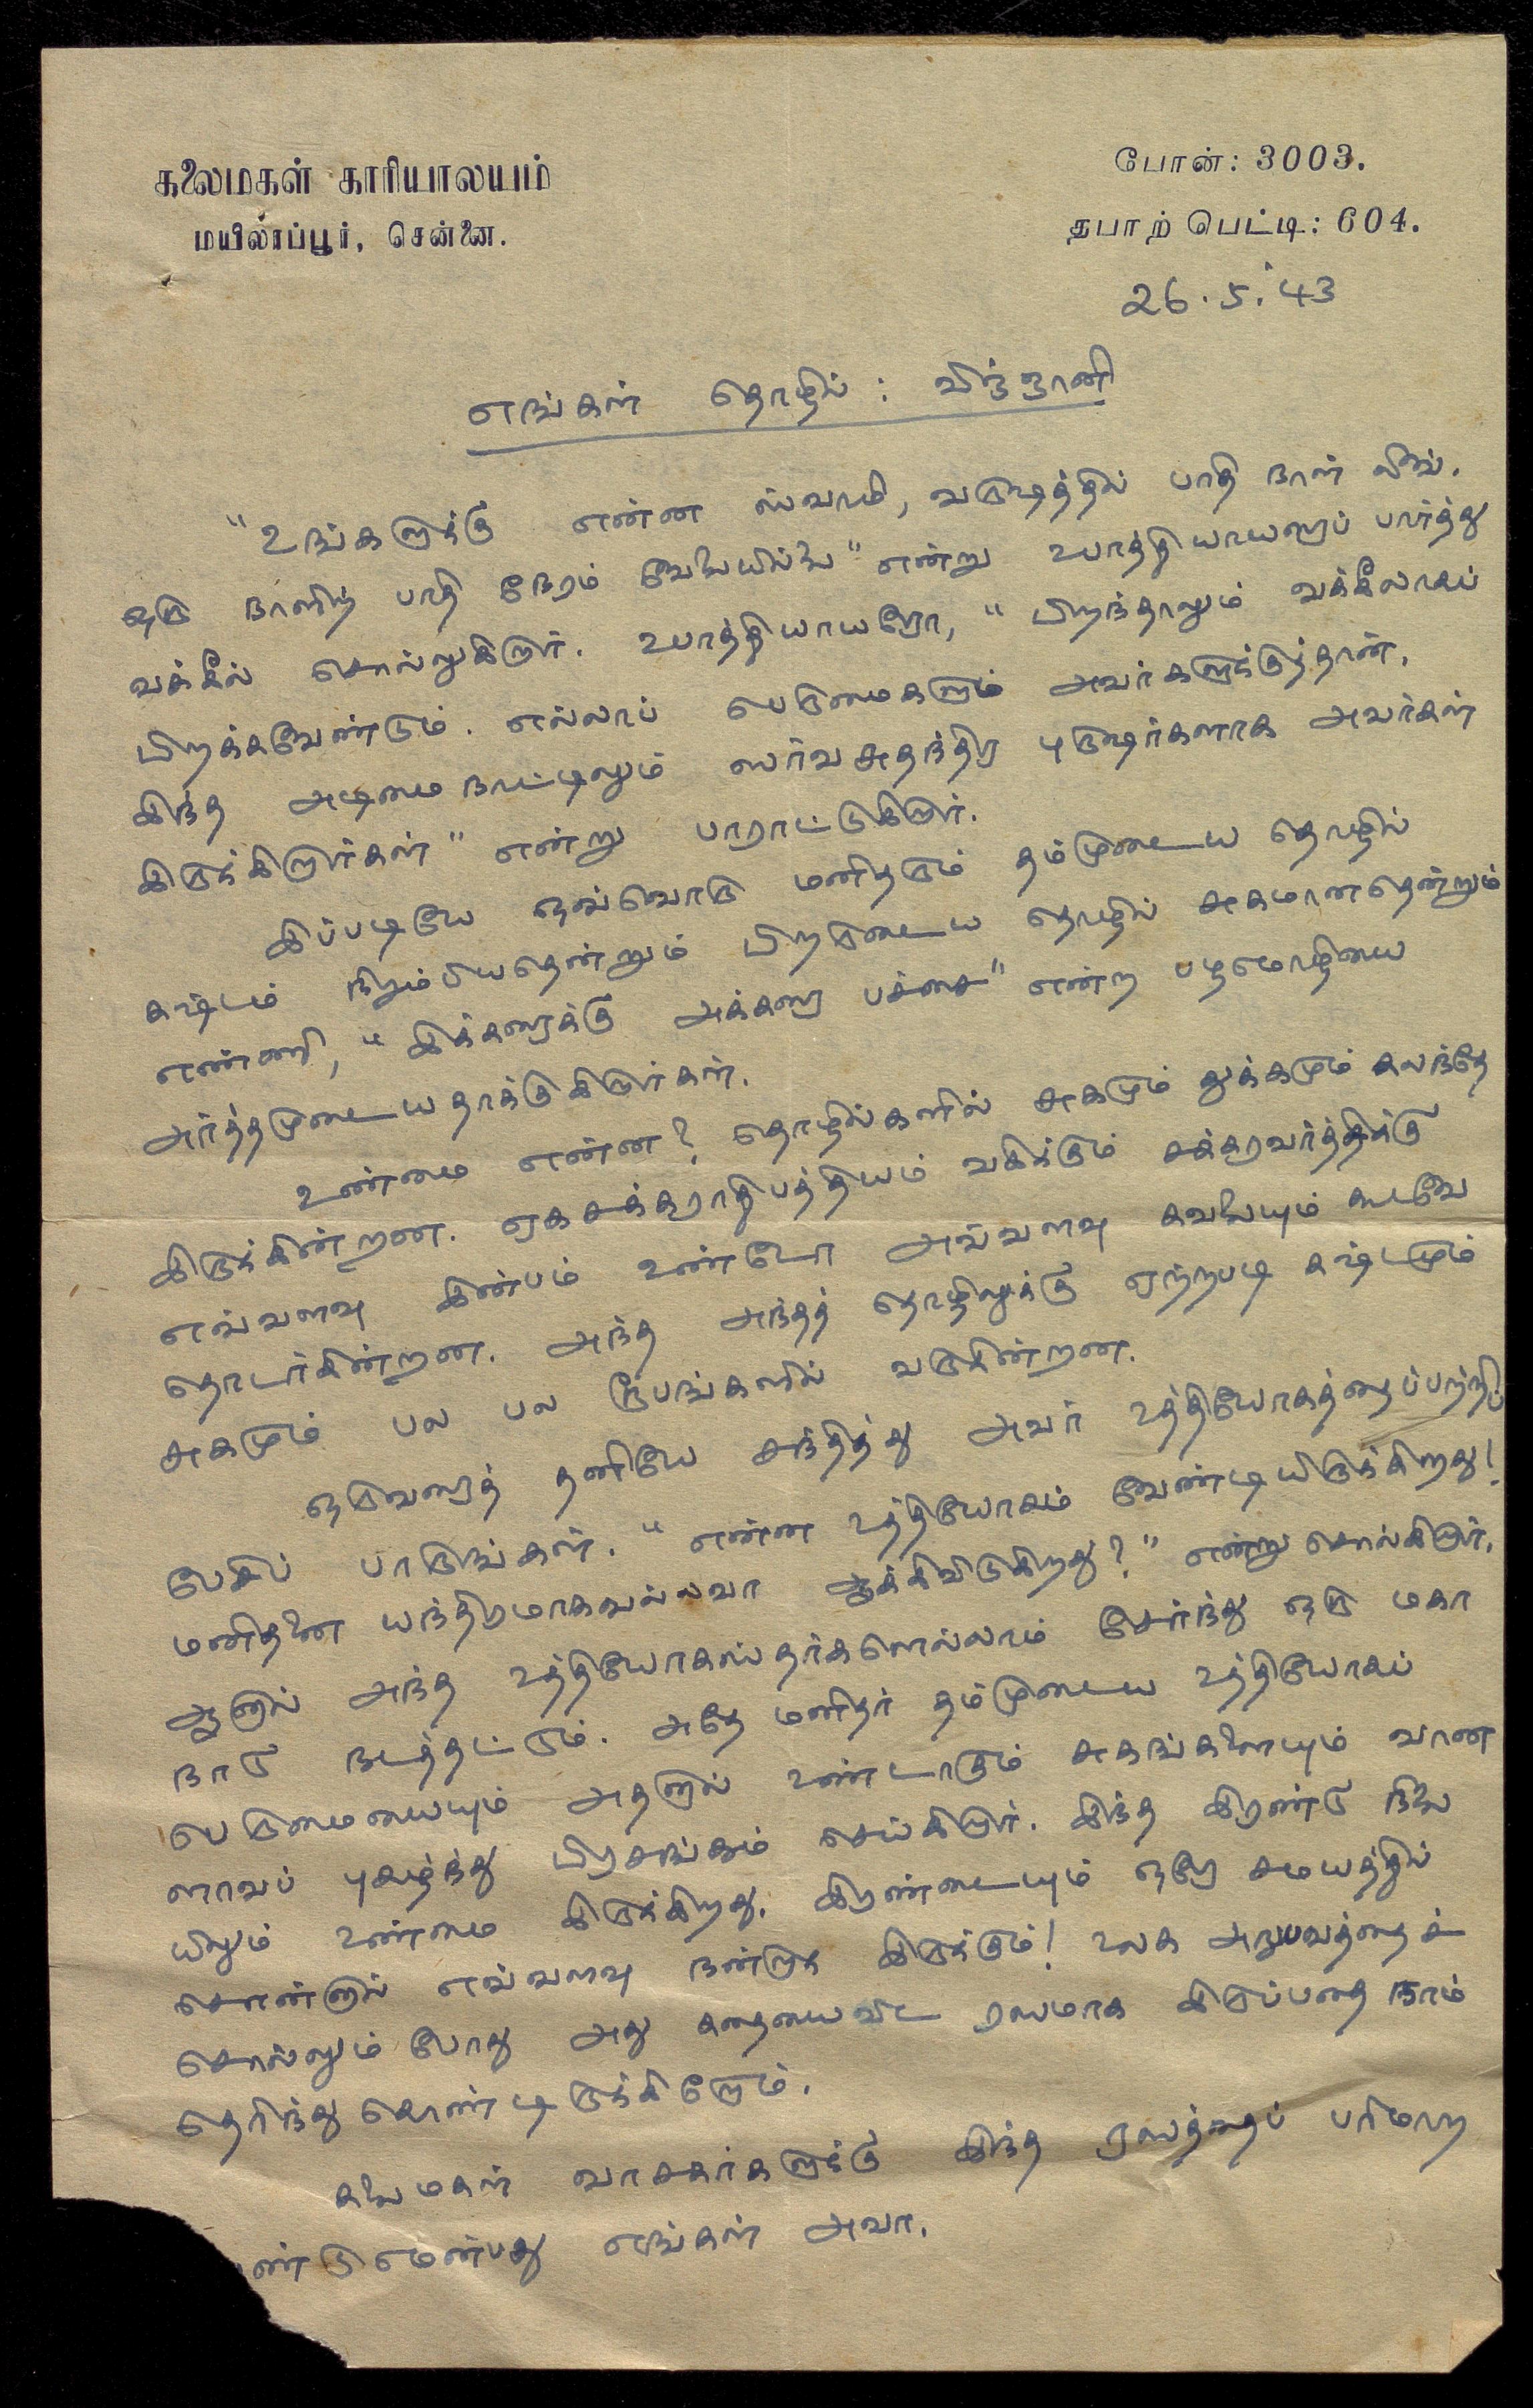 கலைமகள் காரியாலயம்
மயிலாப்பூர், சென்னை.
போன்: 3003.
தபாற் பெட்டி: 604.
26.5.'43
எங்கள் தொழில் : விஞ்ஞானி
"உங்களுக்கு என்ன ஸ்வாமி, வருஷத்தில் பாதி நாள் லீவு.
ஒரு நாளிற் பாதி நேரம் வேலையில்லை" என்று உபாத்தியாயரைப் பார்த்து
வக்கீல் சொல்லுகிறார். உபாத்தியாயரோ, "பிறந்தாலும் வக்கீலாகப்
பிறக்கவேண்டும். எல்லாப் பெருமைகளும் அவர்களுக்குத்தான்.
இந்த அடிமை நாட்டிலும் ஸர்வசுதந்திர புருஷர்களாக அவர்கள்
இருக்கிறார்கள்" என்று பாராட்டுகிறார்.
இப்படியே ஒவ்வொரு மனிதரும் தம்முடைய தொழில்
கஷ்டம் நிரம்பியதென்றும் பிறருடைய தொழில் சுகமானதென்றும்
எண்ணி, "இக்கரைக்கு அக்கரை பச்சை" என்ற பழமொழியை
அர்த்தமுடையதாக்குகிறார்கள்.
உண்மை என்ன? தொழில்களில் சுகமும் துக்கமும் கலந்தே
இருக்கின்றன. ஏகசக்கராதிபத்தியம் வகிக்கும் சக்கரவர்த்திக்கு
எவ்வளவு இன்பம் உண்டோ அவ்வளவு கவலையும் கூடவே
தொடர்கின்றன. அந்த அந்தத் தொழிலுக்கு ஏற்றபடி கஷ்டமும்
சுகமும் பல பல ரூபங்களில் வருகின்றன.
ஒருவரைத் தனியே சந்தித்து அவர் உத்தியோகத்தைப்பற்றிப்
பேசிப் பாருங்கள். "என்ன உத்தியோகம் வேண்டியிருக்கிறது!
மனிதனை யந்திரமாகவல்லவா ஆக்கிவிடுகிறது?" என்று சொல்கிறார்.
ஆனால் அந்த உத்தியோகஸ்தர்களெல்லாம் சேர்ந்து ஒரு மகா
நாடு நடத்தட்டும். அதே மனிதர் தம்முடைய உத்தியோகப்
பெருமையையும் அதனால் உண்டாகும் சுகங்களையும் வான
ளாவப் புகழ்ந்து பிரசங்கம் செய்கிறார். இந்த இரண்டு நிலை
யிலும் உண்மை இருக்கிறது. இரண்டையும் ஒரே சமயத்தில்
சொன்னால் எவ்வளவு நன்றாக இருக்கும்! உலக அநுபவத்தைச்
சொல்லும்போது அது கதையைவிட ரஸமாக இருப்பதை நாம்
தெரிந்துகொண்டிருக்கிறோம்.
கலைமகள் வாசகர்களுக்கு இந்த ரஸத்தைப் பரிமாற
ண்டுமென்பது எங்கள் அவா.